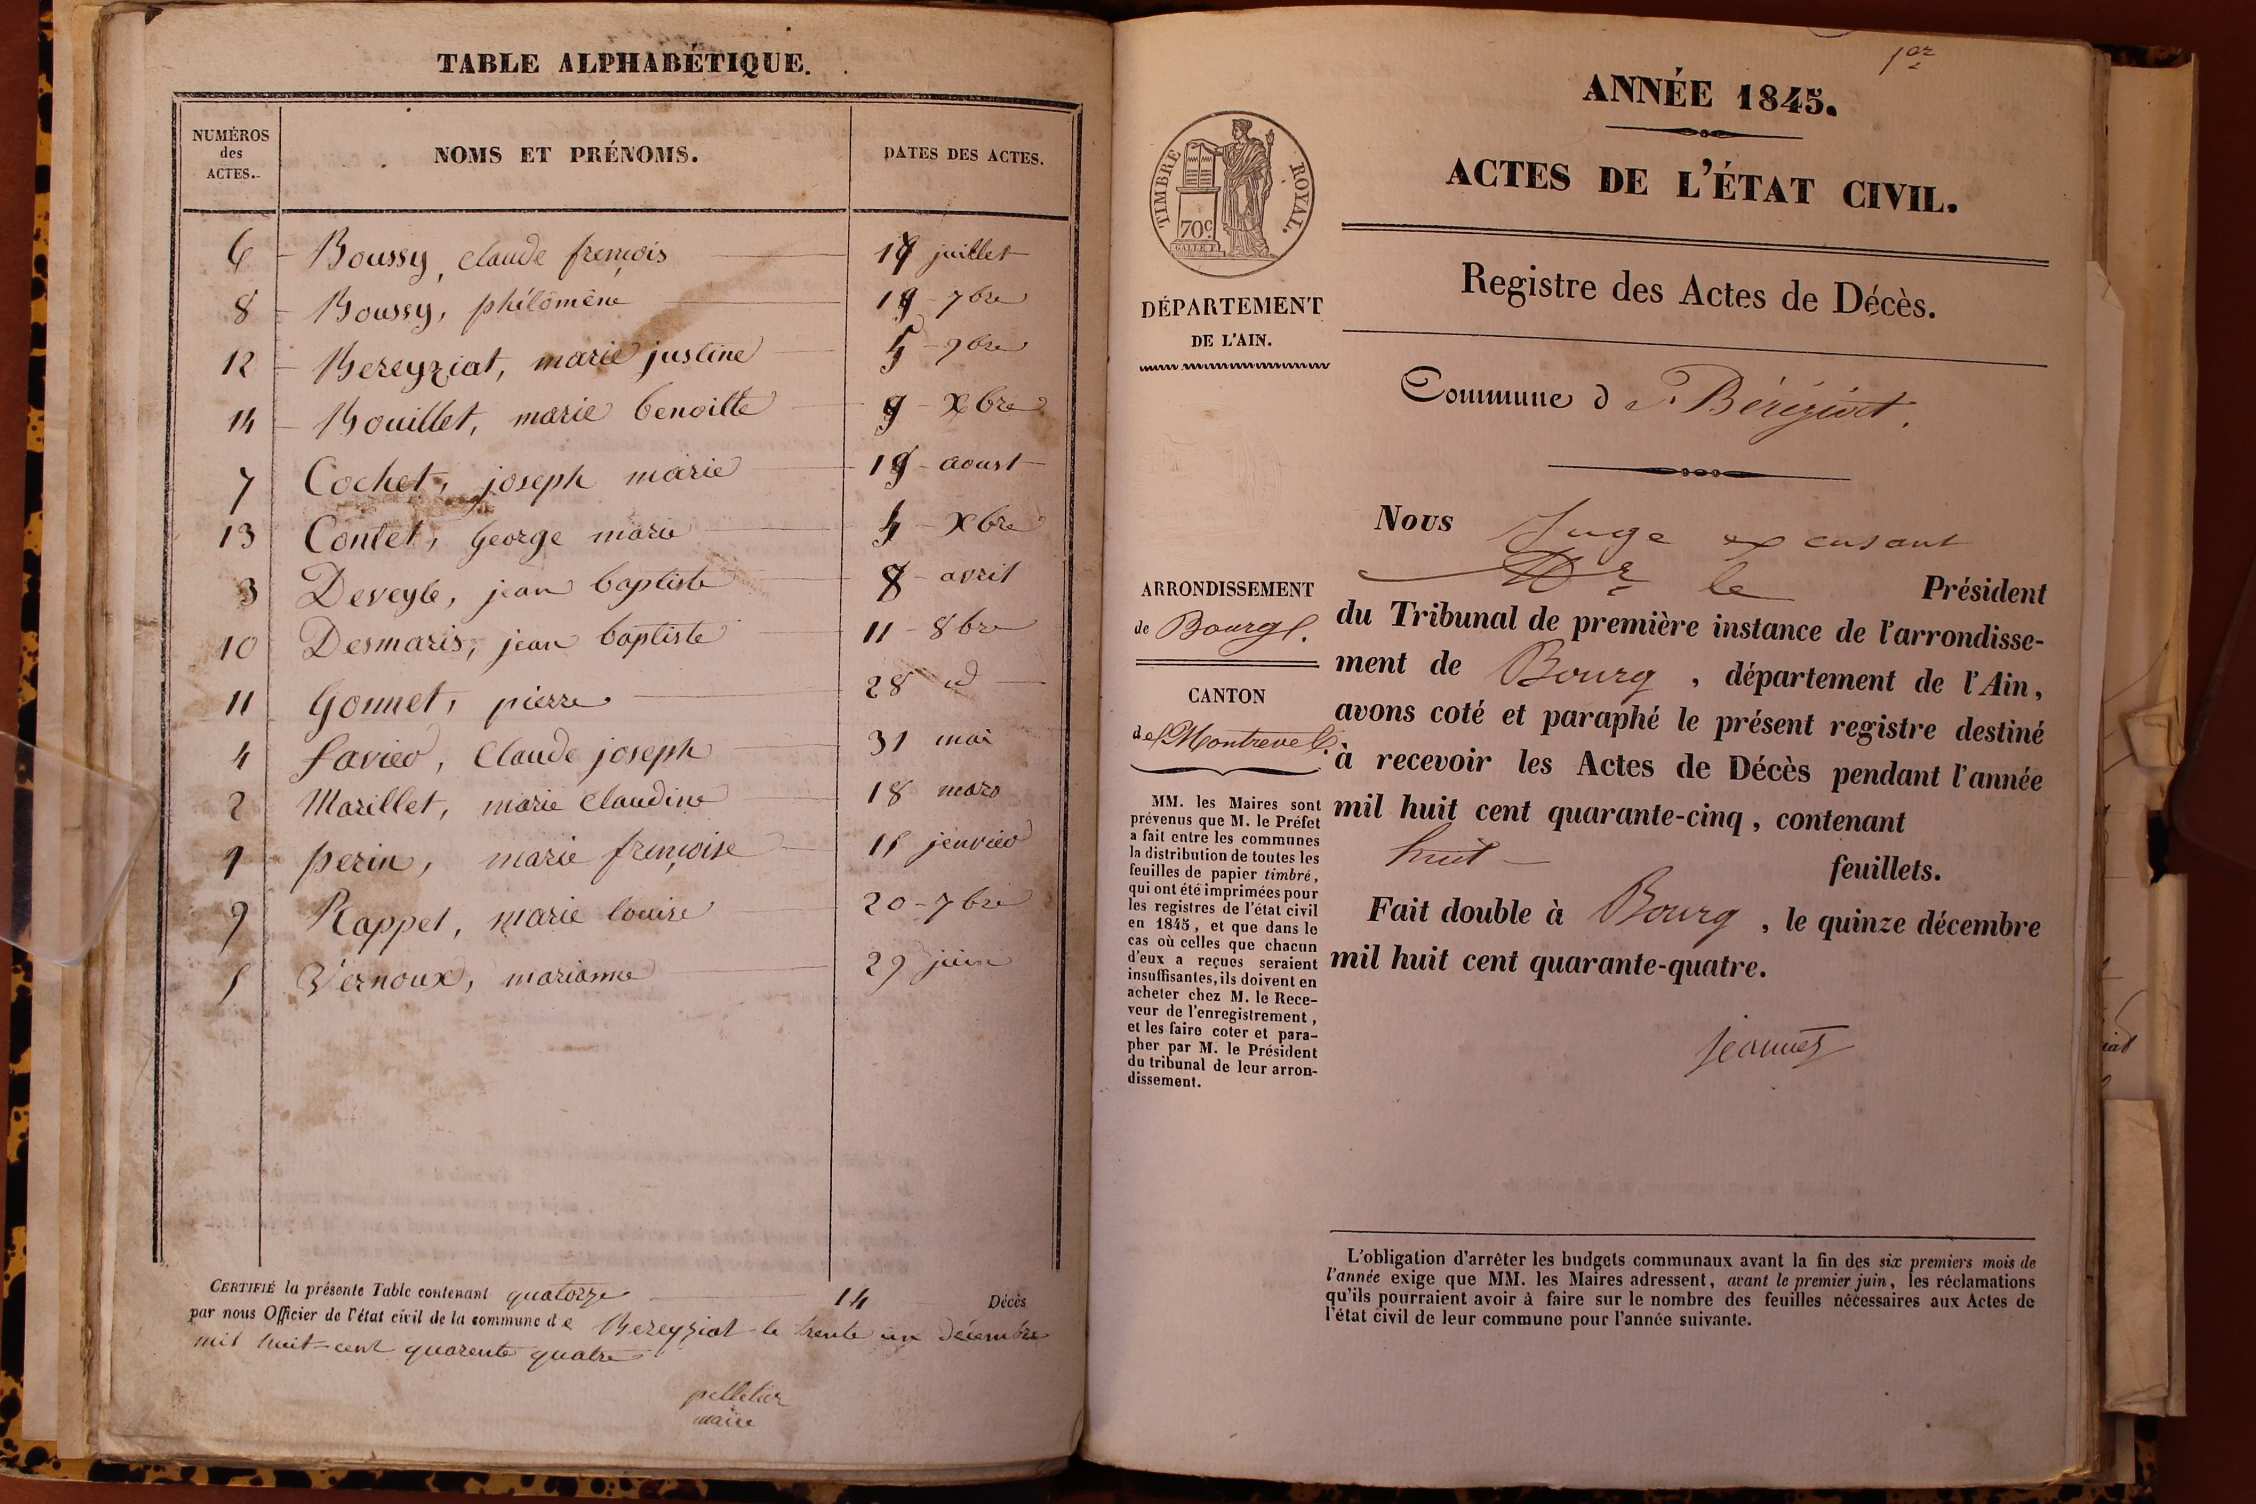 TABLE ALPHABÉTIQUE.
NUMÉROS
des
ACTES.
NOMS ET PRÉNOMS.
DATES DES ACTES.
6 Boussy, claude frençois juillet
8 Boussy, philomène 19 7bre
12 Bereyziat, marie justine 5 9bre
14 Bouillet, marie benoitte 9 Xbre
7 Cochet, joseph marie 19 aoust
13 Contet, george marie 4 Xbre
3 Deveyle, jean baptiste 8 avril
10 Desmaris, jean baptiste 11 8bre
11 Gonnet, pierre 28 id
4 Claude joseph 31 mai
2 Marillet, marie Claudine 18 mars
1 perin, marie frençoise 15 jenvier
9 Rappet, marie louise 20 7bre
5 Vernoux, marianne 29 juin
CERTIFIÉ la présente Table contenant quatorze 14 Décès
par nous Officier de l'état civil de la commune de Bereyziat le trente un décembre
mil huit-cent quarente quatre
pelletier
maire
1er
ANNÉE 1845.
ACTES DE L'ÉTAT CIVIL.
TIMBRE ROYAL.
70c.
Registre des Actes de Décès.
DÉPARTEMENT
DE L'AIN.
Commune d Béréziat.
ARRONDISSEMENT
de Bourg.
CANTON
de Montrevel.
MM. les Maires sont
prévenus que M. le Préfet
a fait entre les communes
la distribution de toutes les
feuilles de papier timbré,
qui ont été imprimées pour
les registres de l'état civil
en 1845, et que dans le
cas où celles que chacun
d'eux a reçues seraient
insuffisantes, ils doivent en
acheter chez M. le Rece-
veur de l'enregistrement,
et les faire coter et para-
pher par M. le Président
du tribunal de leur arron-
dissement.
Nous Juge
Mr le Président
du Tribunal de première instance de l'arrondisse-
ment de Bourg, département de l'Ain,
avons coté et paraphé le présent registre destiné
à recevoir les Actes de Décès pendant l'année
mil huit cent quarante-cinq, contenant
huit feuillets.
Fait double à Bourg, le quinze décembre
mil huit cent quarante-quatre.
L'obligation d'arrêter les budgets communaux avant la fin des six premiers mois de
l'année exige que MM. les Maires adressent, avant le premier juin, les réclamations
qu'ils pourraient avoir à faire sur le nombre des feuilles nécessaires aux Actes de
l'état civil de leur commune pour l'année suivante.